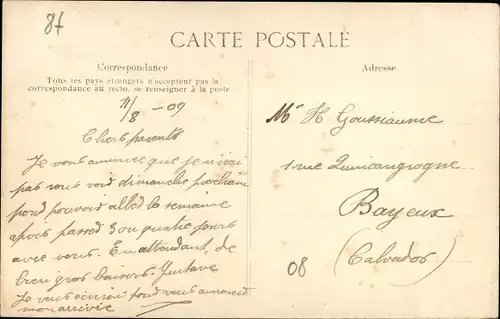 87
CARTE POSTALE
Correspondance
Tous les pays étrangers n'acceptent pas la
correspondance au recto, se renseigner à la poste
11/8 - 09
Chers parents
Je vous annonce que je n'irai
pas vous voir dimanche prochain
pour pouvoir aller la semaine
après passer 3 ou quatre jours
avec vous. En attendant, de
bien gros baisers. Gustave
Je vous écrirai pour vous annoncer
mon arrivée
Adresse
Mr H Goussiaume
1 rue Quincangrogne
Bayeux
(Calvados)
08